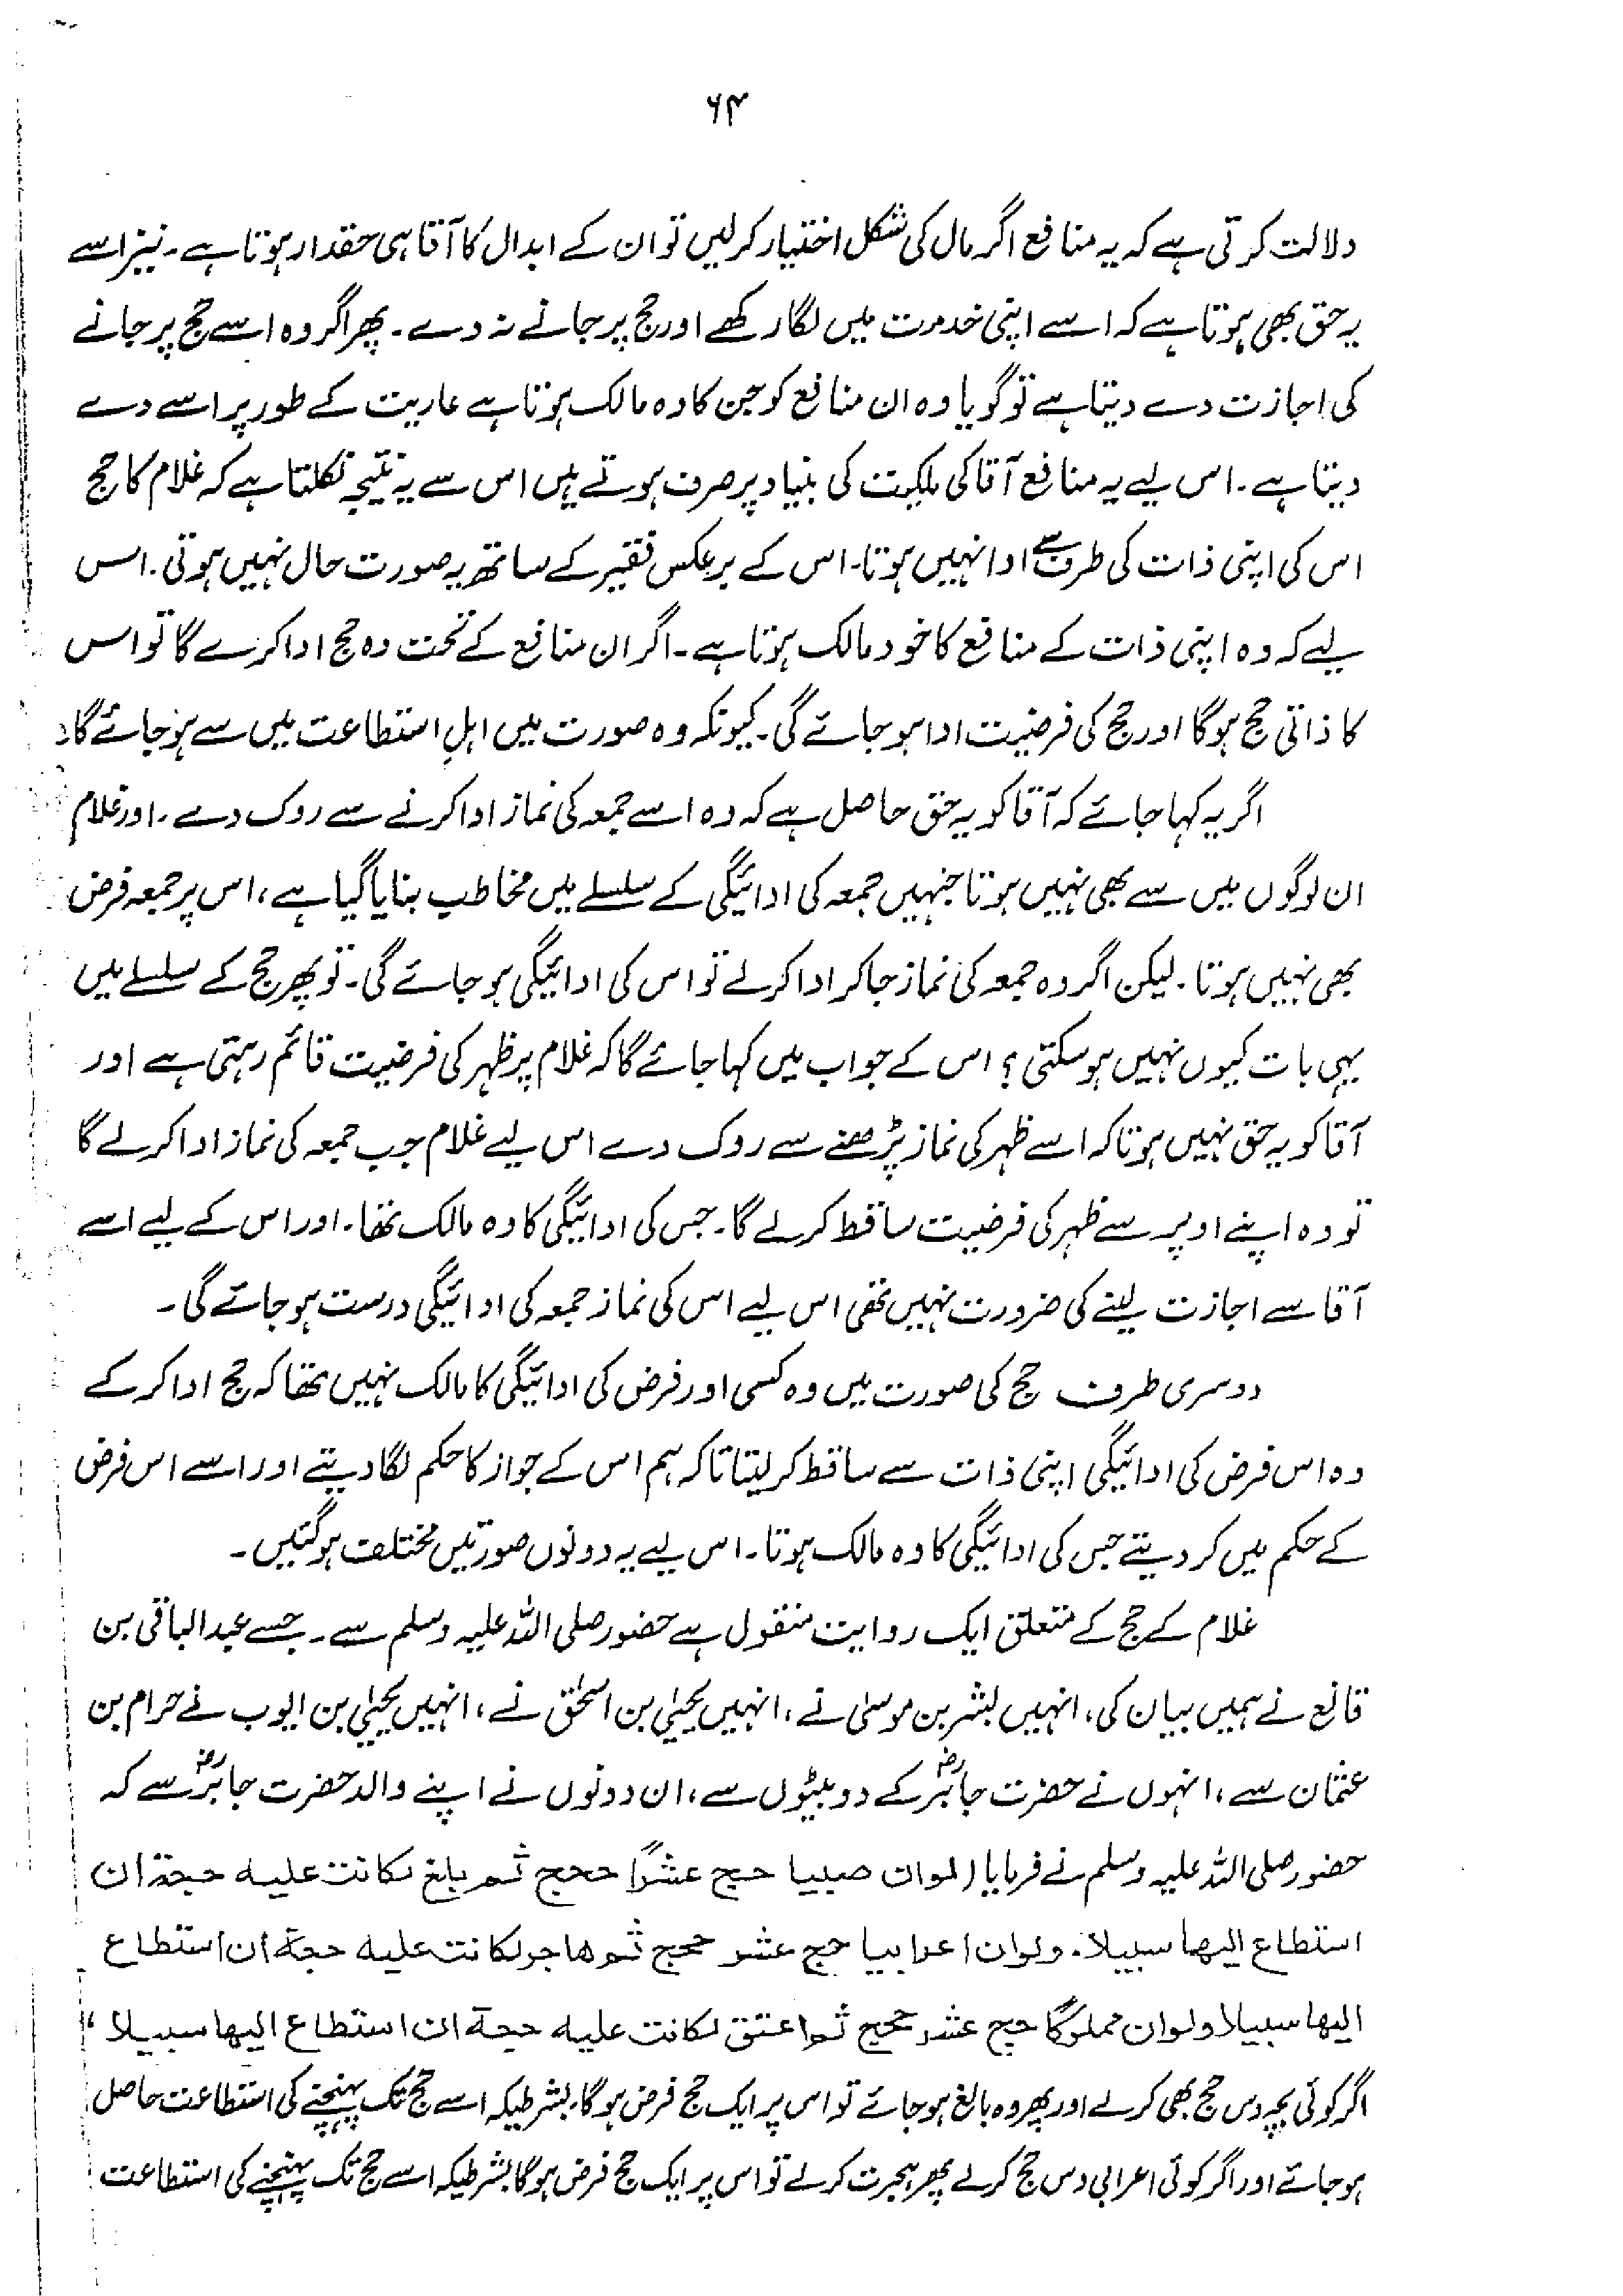 ۶۴
دلالت کرتی ہے کہ یہ منافع اگر مال کی شکل اختیار کرلیں تو ان کے ابدال کا آقا ہی حقدار ہوتا ہے۔ نیز اسے
یہ حق بھی ہوتا ہے کہ اسے اپنی خدمت میں لگا رکھے اور حج پر جانے نہ دے۔ پھر اگر وہ اسے حج پر جانے
کی اجازت دے دیتا ہے تو گویا وہ ان منافع کو جن کا وہ مالک ہوتا ہے عاریت کے طور پر اسے دے
دیتا ہے۔ اس لیے یہ منافع آقا کی ملکیت کی بنیاد پر صرف ہوتے ہیں اس سے یہ نتیجہ نکلتا ہے کہ غلام کا حج
اس کی اپنی ذات کی طرف سے ادا نہیں ہوتا۔ اس کے برعکس فقیر کے ساتھ یہ صورت حال نہیں ہوتی۔ اس
لیے کہ وہ اپنی ذات کے منافع کا خود مالک ہوتا ہے۔ اگر ان منافع کے تحت وہ حج ادا کرے گا تو اس
کا ذاتی حج ہوگا اور حج کی فرضیت ادا ہو جائے گی۔ کیونکہ وہ صورت میں اہلِ استطاعت میں سے ہو جائے گا۔
اگر یہ کہا جائے کہ آقا کو یہ حق حاصل ہے کہ وہ اسے جمعہ کی نماز ادا کرنے سے روک دے۔ اور غلام
ان لوگوں میں سے بھی نہیں ہوتا جنہیں جمعہ کی ادائیگی کے سلسلے میں مخاطب بنایا گیا ہے، اس پر جمعہ فرض
بھی نہیں ہوتا۔ لیکن اگر وہ جمعہ کی نماز جا کر ادا کرلے تو اس کی ادائیگی ہو جائے گی۔ تو پھر حج کے سلسلے میں
یہی بات کیوں نہیں ہو سکتی؟ اس کے جواب میں کہا جائے گا کہ غلام پر ظہر کی فرضیت قائم رہتی ہے اور
آقا کو یہ حق نہیں ہوتا کہ اسے ظہر کی نماز پڑھنے سے روک دے اس لیے غلام جب جمعہ کی نماز ادا کرلے گا
تو وہ اپنے اوپر سے ظہر کی فرضیت ساقط کرلے گا۔ جس کی ادائیگی کا وہ مالک تھا۔ اور اس کے لیے اسے
آقا سے اجازت لینے کی ضرورت نہیں تھی اس لیے اس کی نماز جمعہ کی ادائیگی درست ہو جائے گی۔
دوسری طرف حج کی صورت میں وہ کسی اور فرض کی ادائیگی کا مالک نہیں تھا کہ حج ادا کر کے
وہ اس فرض کی ادائیگی اپنی ذات سے ساقط کر لیتا تاکہ ہم اس کے جواز کا حکم لگا دیتے اور اسے اس فرض
کے حکم میں کر دیتے جس کی ادائیگی کا وہ مالک ہوتا۔ اس لیے یہ دونوں صورتیں مختلف ہو گئیں۔
غلام کے حج کے متعلق ایک روایت منقول ہے حضور صلی اللہ علیہ وسلم سے۔ جسے عبدالباقی بن
قانع نے ہمیں بیان کی، انہیں بشر بن موسیٰ نے، انہیں یحییٰ بن اسحٰق نے، انہیں یحییٰ بن ایوب نے حرام بن
عثمان سے، انہوں نے حضرت جابرؓ کے دو بیٹوں سے، ان دونوں نے اپنے والد حضرت جابرؓ سے کہ
حضور صلی اللہ علیہ وسلم نے فرمایا (لوان صبیا حج عشراً حجج ثم بلغ لکانت علیہ حجة ان
استطاع الیھا سبیلا۔ ولوان اعرابیا حج عشر حجج ثم ھاجر لکانت علیہ حجة ان استطاع
الیھا سبیلا ولوان مملوکا حج عشر حجج ثم اعتق لکانت علیہ حجة ان استطاع الیھا سبیلا“
اگر کوئی بچہ دس حج بھی کرلے اور پھر وہ بالغ ہو جائے تو اس پر ایک حج فرض ہوگا، بشرطیکہ اسے حج تک پہنچنے کی استطاعت حاصل
ہو جائے اور اگر کوئی اعرابی دس حج کرلے پھر ہجرت کرلے تو اس پر ایک حج فرض ہوگا بشرطیکہ اسے حج تک پہنچنے کی استطاعت